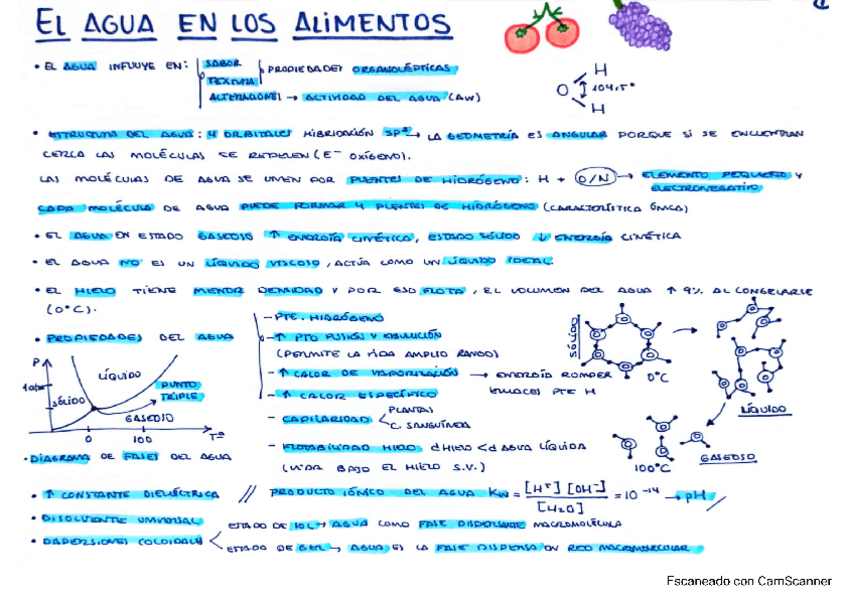 EL AGUA EN LOS ALIMENTOS
• EL AGUA INFLUYE EN: SABOR
TEXTURA
PROPIEDADES ORGANOLÉPTICAS
ALTERACIONES → ACTIVIDAD DEL AGUA (AW)
H
O 104,5°
H
• ESTRUCTURA DEL AGUA: 4 ORBITALES HIBRIDACIÓN SP³ → LA GEOMETRÍA ES ANGULAR PORQUE SI SE ENCUENTRAN
CERCA LAS MOLÉCULAS SE REPELEN (E⁻ OXÍGENO).
LAS MOLÉCULAS DE AGUA SE UNEN POR PUENTES DE HIDRÓGENO: H + O/N → ELEMENTO PEQUEÑO Y
ELECTRONEGATIVO
CADA MOLÉCULA DE AGUA PUEDE FORMAR 4 PUENTES DE HIDRÓGENO (CARACTERÍSTICA ÚNICA)
• EL AGUA EN ESTADO GASEOSO ↑ ENERGÍA CINÉTICA, ESTADO SÓLIDO ↓ ENERGÍA CINÉTICA
• EL AGUA NO ES UN LÍQUIDO VISCOSO, ACTÚA COMO UN LÍQUIDO IDEAL.
• EL HIELO TIENE MENOR DENSIDAD Y POR ESO FLOTA, EL VOLUMEN DEL AGUA ↑ 9% AL CONGELARSE
(0°C).
• PROPIEDADES DEL AGUA
- PTE. HIDRÓGENO
- ↑ PTO FUSIÓN Y EBULLICIÓN
(PERMITE LA VIDA AMPLIO RANGO)
- ↑ CALOR DE VAPORIZACIÓN → ENERGÍA ROMPER
ENLACES PTE H
- ↑ CALOR ESPECÍFICO
- CAPILARIDAD PLANTAS
C. SANGUÍNEA
- FLOTABILIDAD HIELO dHIELO < d AGUA LÍQUIDA
(VIDA BAJO EL HIELO S.V.)
P
LÍQUIDO
SÓLIDO
PUNTO
TRIPLE
GASEOSO
0 100 Tª
• DIAGRAMA DE FASES DEL AGUA
SÓLIDO
0°C
LÍQUIDO
100°C
GASEOSO
• ↑ CONSTANTE DIELÉCTRICA // PRODUCTO IÓNICO DEL AGUA Kw = [H⁺] [OH⁻] / [H₂O] = 10⁻¹⁴ → pH
• DISOLVENTE UNIVERSAL
• DISPERSIONES COLOIDALES
ESTADO DE SOL → AGUA COMO FASE DISPERSANTE MACROMOLÉCULA
ESTADO DE GEL → AGUA ES LA FASE DISPERSA EN RED MACROMOLECULAR
Escaneado con CamScanner